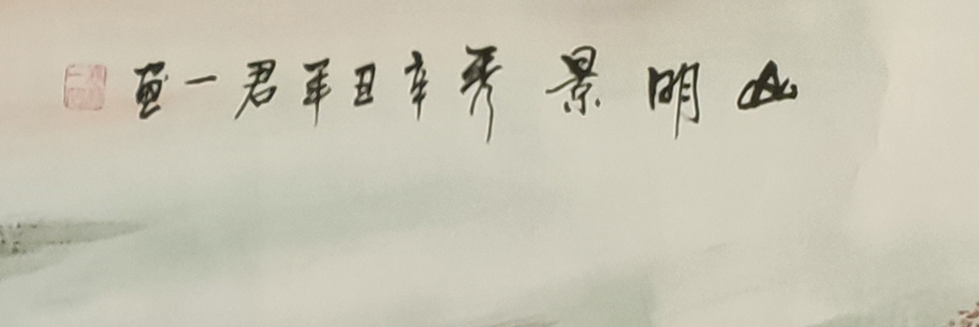 山明景秀辛丑年君一画